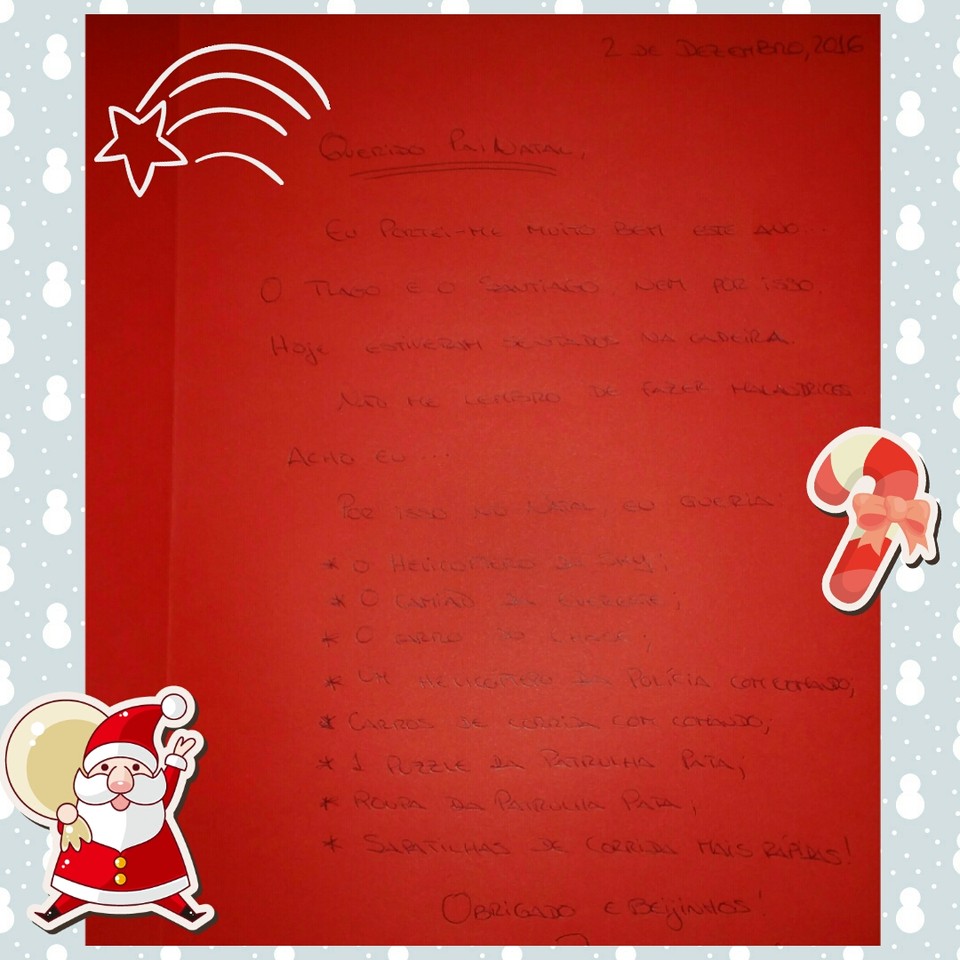 2 DE DEZEMBRO, 2016
QUERIDO PAI NATAL,
EU PORTEI-ME MUITO BEM ESTE ANO...
O TIAGO E O SANTIAGO NEM POR ISSO.
HOJE ESTIVERAM SENTADOS NA CADEIRA.
NÃO ME LEMBRO DE FAZER MALANDRICES
ACHO EU....
POR ISSO NO NATAL, EU QUERIA:
* O HELICOPTERO DA SKY;
* O CAMIÃO DA EVERESTE;
* O CARRO DO CHASE;
* UM HELICOPTERO DA POLÍCIA COM COMANDO;
* CARROS DE CORRIDA COM COMANDO;
* 1 PUZZLE DA PATRULHA PATA;
* ROUPA DA PATRULHA PATA;
* SAPATILHAS DE CORRIDA MAIS RÁPIDAS!
OBRIGADO E BEIJINHOS!